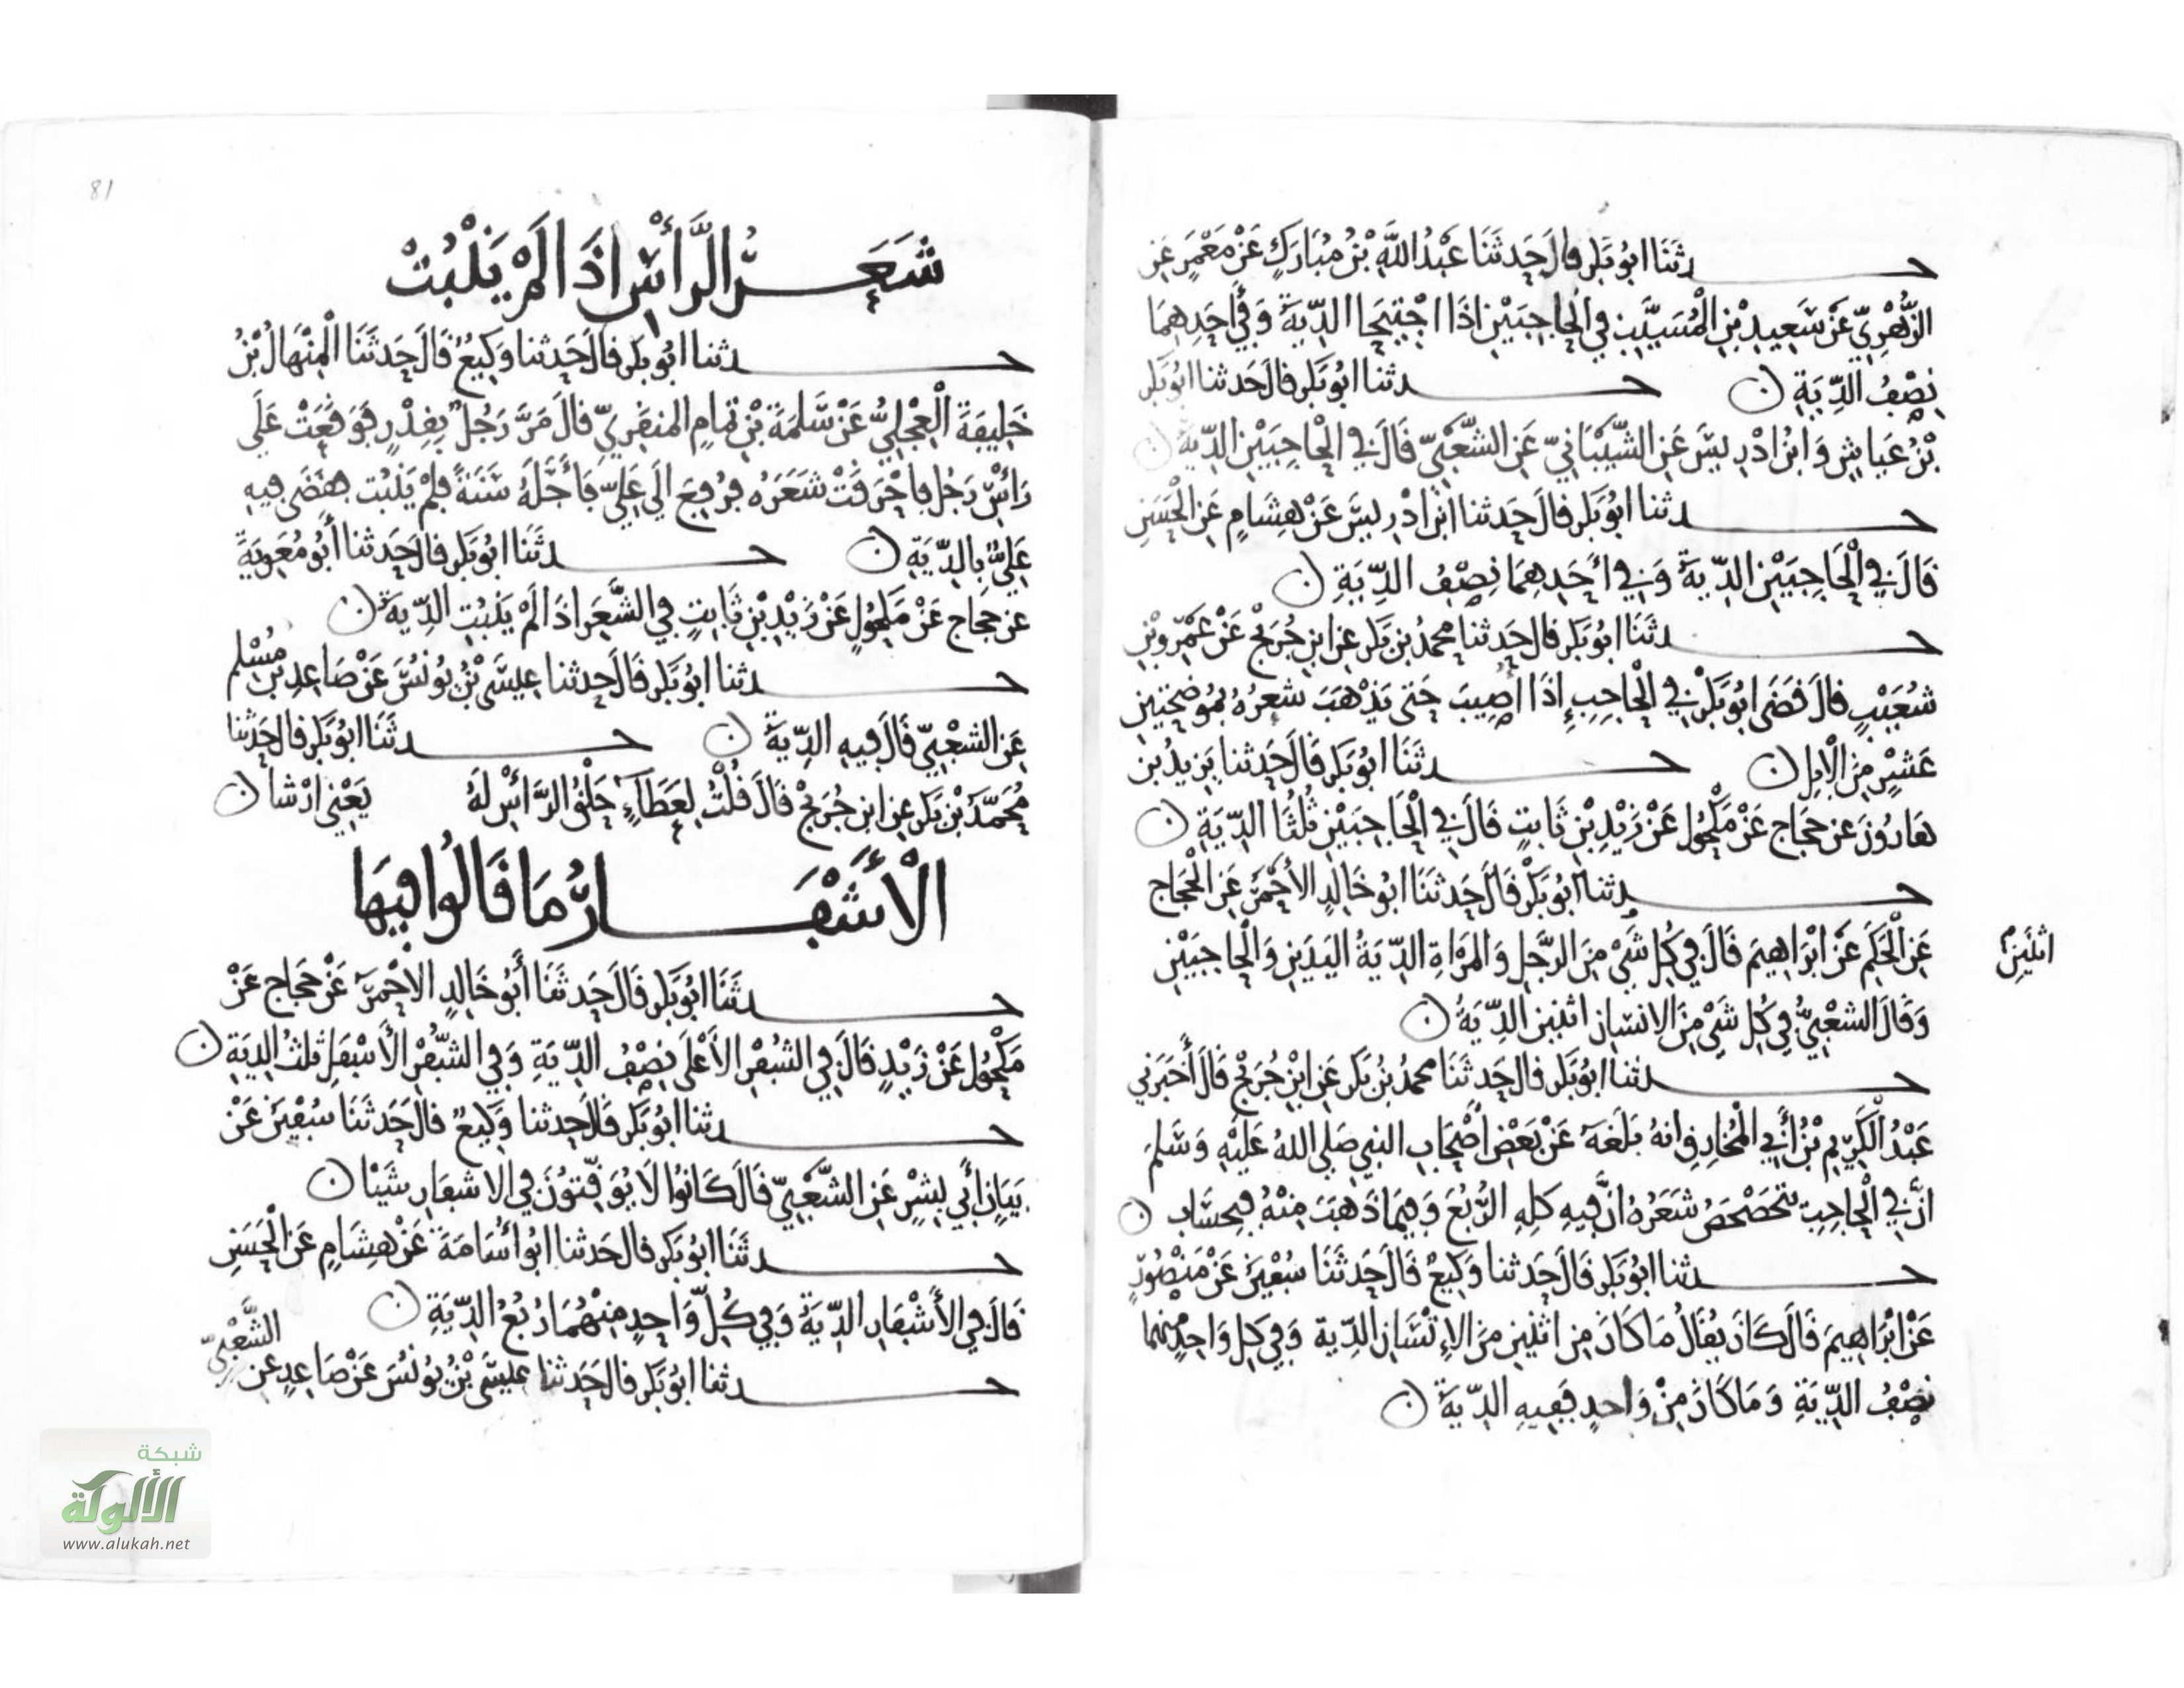 حدثنا ابو بكر قال حدثنا عبد الله بن مبارك عن معمر عن
الزهري عن سعيد بن المسيب في الحاجبين اذا اجتيحا الدية وفي احدهما
نصف الدية ن حدثنا ابو بكر قال حدثنا ابو بكر
بن عياش وابن ادريس عن الشيباني عن الشعبي قال في الحاجبين الدية ن
حدثنا ابو بكر قال حدثنا ابن ادريس عن هشام عن الحسن
قال في الحاجبين الدية وفي احدهما نصف الدية ن
حدثنا ابو بكر قال حدثنا محمد بن بكر عن ابن جريج عن عمرو بن
شعيب قال قضى ابو بكر في الحاجب اذا اصيب حتى يذهب شعره بموضحتين
عشر من الابل ن حدثنا ابو بكر قال حدثنا يزيد بن
هارون عن حجاج عن مكحول عن زيد بن ثابت قال في الحاجبين ثلثا الدية ن
حدثنا ابو بكر قال حدثنا ابو خالد الأحمر عن الحجاج
عن الحكم عن ابراهيم قال في كل شي من الرجل والمراة الدية اليدين والحاجبين
اثنين
وقال الشعبي في كل شي من الانسان اثنين الدية ن
حدثنا ابو بكر قال حدثنا محمد بن بكر عن ابن جريج قال أخبرني
عبد الكريم بن أبي المخارق انه بلغه عن بعض اصحاب النبي صلى الله عليه وسلم
ان في الحاجب يتحصحص شعره ان فيه كله الربع وفيما ذهب منه فبحساب ن
حدثنا ابو بكر قال حدثنا وكيع قال حدثنا سفين عن منصور
عن ابراهيم قال كان يقال ما كان من اثنين من الإنسان الدية وفي كل واحد منهما
نصف الدية وما كان من واحد ففيه الدية ن
81
شعر الرأس اذا لم ينبت
حدثنا ابو بكر قال حدثنا وكيع قال حدثنا المنهال بن
خليفة العجلي عن سلمة بن تمام المنقري قال مر رجل بقدر فوقعت على
رأس رجل فاحرقت شعره فرفع الى علي فأجله سنة فلم ينبت فقضى فيه
علي بالدية ن حدثنا ابو بكر قال حدثنا أبو معوية
عن حجاج عن مكحول عن زيد بن ثابت في الشعر اذا لم ينبت الدية ن
حدثنا ابو بكر قال حدثنا عيسى بن يونس عن صاعد بن مسلم
عن الشعبي قال فيه الدية ن حدثنا ابو بكر قال حدثنا
محمد بن بكر عن ابن جريج قال قلت لعطاء حلق الرأس له يعني ارشا ن
الأشفار ما قالوا فيها
حدثنا ابو بكر قال حدثنا أبو خالد الاحمر عن حجاج عن
مكحول عن زيد قال في الشفر الأعلى نصف الدية وفي الشفر الأسفل ثلث الدية ن
حدثنا ابو بكر قال حدثنا وكيع قال حدثنا سفين عن
بيان أبي بشر عن الشعبي قال كانوا لا يوقتون في الاشفار شيئا ن
حدثنا ابو بكر قال حدثنا ابو أسامة عن هشام عن الحسن
قال في الأشفار الدية وفي كل واحد منهما ربع الدية ن
حدثنا ابو بكر قال حدثنا عيسى بن يونس عن صاعد عن الشعبي
شبكة
الألوكة
www.alukah.net